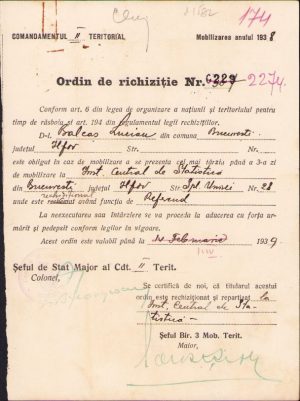 Cluj
174
COMANDAMENTUL II TERITORIAL
Mobilizarea anului 1938
Ordin de richiziție Nr. 6229 -2274.
Conform art. 6 din legea de organizare a națiunii și teritoriului pentru
timp de război și art. 194 din regulamentul legii rechizițiilor.
D-l. Balcas Lucian din comuna București
județul Ilfov Str. Nr.
este obligat în caz de mobilizare a se prezenta cel mai târziu până a 3-a zi
de mobilizare la Inst. Central de Statistică
din București județul Ilfov Str. Spl. Unirei Nr. 28
unde este având funcția de Referend
La neexecutarea sau întârziere se va proceda la aducerea cu forța ar-
mată și pedepsit conform legilor în vigoare.
Acest ordin este valabil până la Februarie 1939
Șeful de Stat Major al Cdt. II Terit.
Colonel,
Se certifică de noi, că titularul acestui
ordin este rechiziționat și repartizat la
Inst. Central de Sta-
tistică
Șeful Bir. 3 Mob. Terit.
Maior,